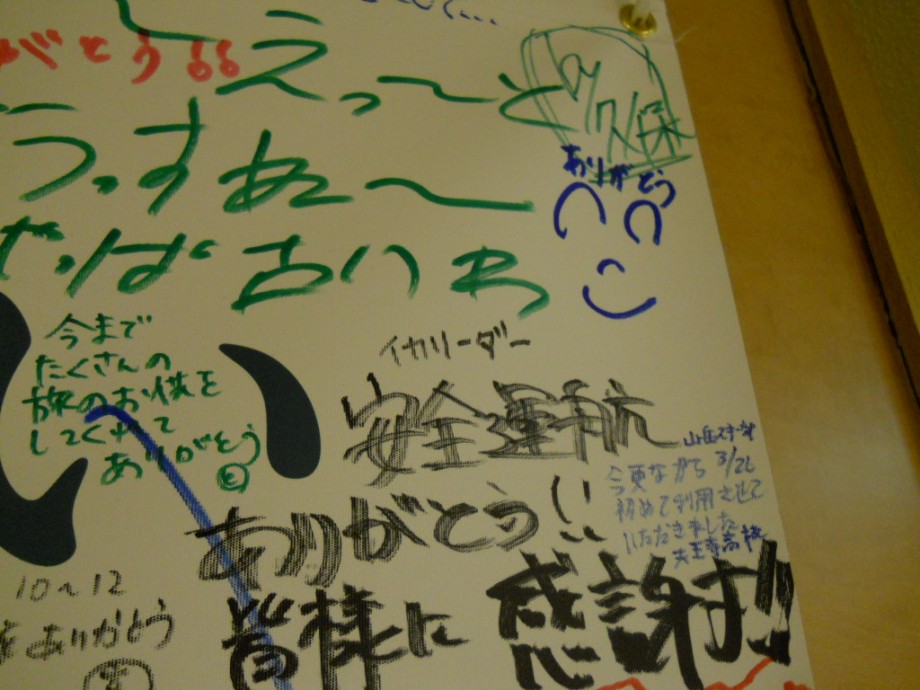 がとう
えっ〜と
by久保
うっすぁ〜
ありがとう
今まで
たくさんの
旅のお供を
してくれて
ありがとう
イカリーダー
安全運航
ありがとう!!
皆様に
感謝!!
3/26
今更ながら
初めて利用させて
いただきました
天王寺高校
10〜12
ありがとう